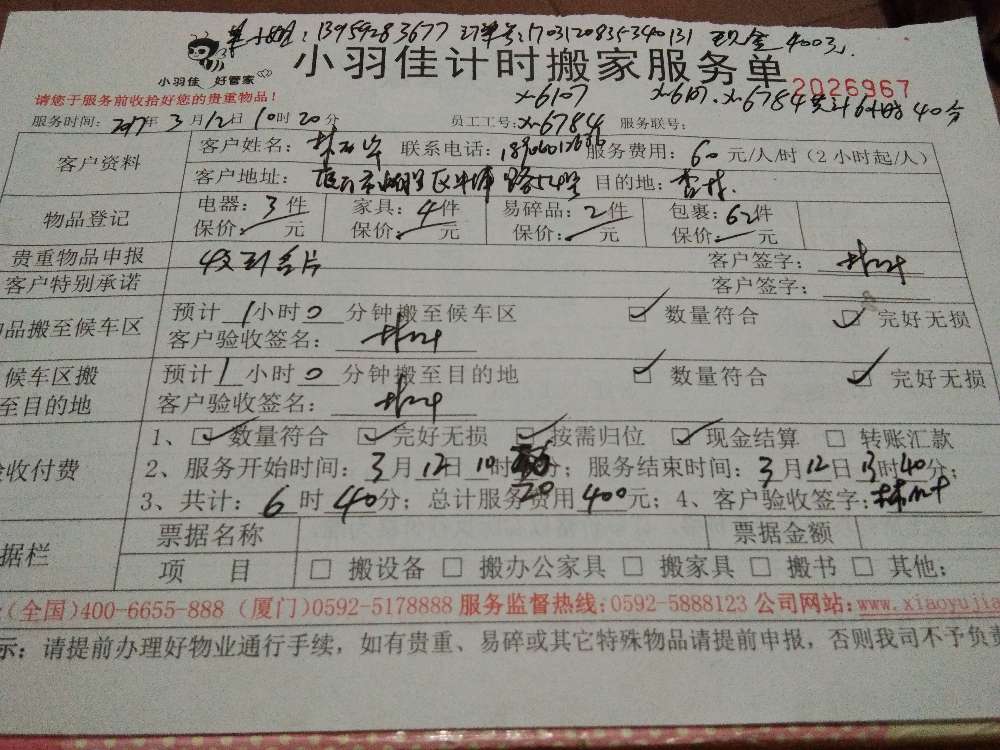 单小姐：13959283677 订单号：170312083534O131 现金400元
小羽佳 好管家
小羽佳计时搬家服务单
2026967
请您于服务前收拾好您的贵重物品！
X-6107 X-6107、X-6784共计6小时40分
服务时间：2017年3月12日10时20分 员工工号：X-6784 服务联号：
客户资料 客户姓名： 联系电话： 服务费用：60元/人/时（2小时起/人）
客户地址： 目的地：
物品登记 电器：3件 家具：4件 易碎品：2件 包裹：62件
保价： 元 保价： 元 保价： 元 保价： 元
贵重物品申报 收到名片 客户签字：
客户特别承诺 客户签字：
品搬至候车区 预计1小时0分钟搬至候车区 数量符合 完好无损
客户验收签名：
候车区搬至目的地 预计1小时0分钟搬至目的地 数量符合 完好无损
客户验收签名：
验收付费 1、数量符合 完好无损 按需归位 现金结算 转账汇款
2、服务开始时间：3月12日10时20分；服务结束时间：3月12日13时40分；
3、共计：6时40分；总计服务费用400元；4、客户验收签字：
据栏 票据名称 票据金额
项 目 搬设备 搬办公家具 搬家具 搬书 其他；
（全国）400-6655-888（厦门）0592-5178888 服务监督热线：0592-5888123 公司网站：www.xiaoyujia
示：请提前办理好物业通行手续，如有贵重、易碎或其它特殊物品请提前申报，否则我司不予负责